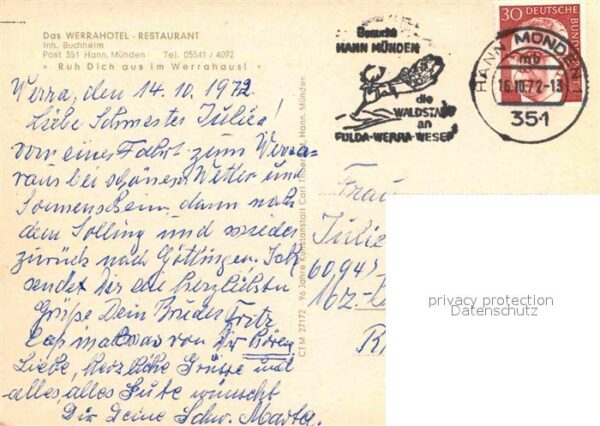 Das WERRAHOTEL - RESTAURANT
Inh. Buchheim
Post 351 Hann. Münden Tel. 05541 / 4092
* Ruh Dich aus im Werrahaus! *
Werra, den 14. 10. 1972.
Liebe Schwester Julie!
von einer Fahrt zum Werra-
haus bei schönem Wetter und
Sonnenschein, dann nach
dem Solling und wieder
zurück nach Göttingen. Ich
sendet Dir die herzlichsten
Grüße Dein Bruder Fritz
mal was von Dir hören
Liebe, herzliche Grüße und
alles, alles Gute wünscht
Dir Deine Schw. Marta.
CTM 27172 96 Jahre Kunstanstalt Carl Hann. Münden
Besucht
HANN MÜNDEN
die
WALDSTADT
an
FULDA-WERRA-WESER
30 DEUTSCHE BUNDESPOST
HANN MÜNDEN 1
mb
16.10.72-13
351
Frau
Julie
Mz-
privacy protection
Datenschutz